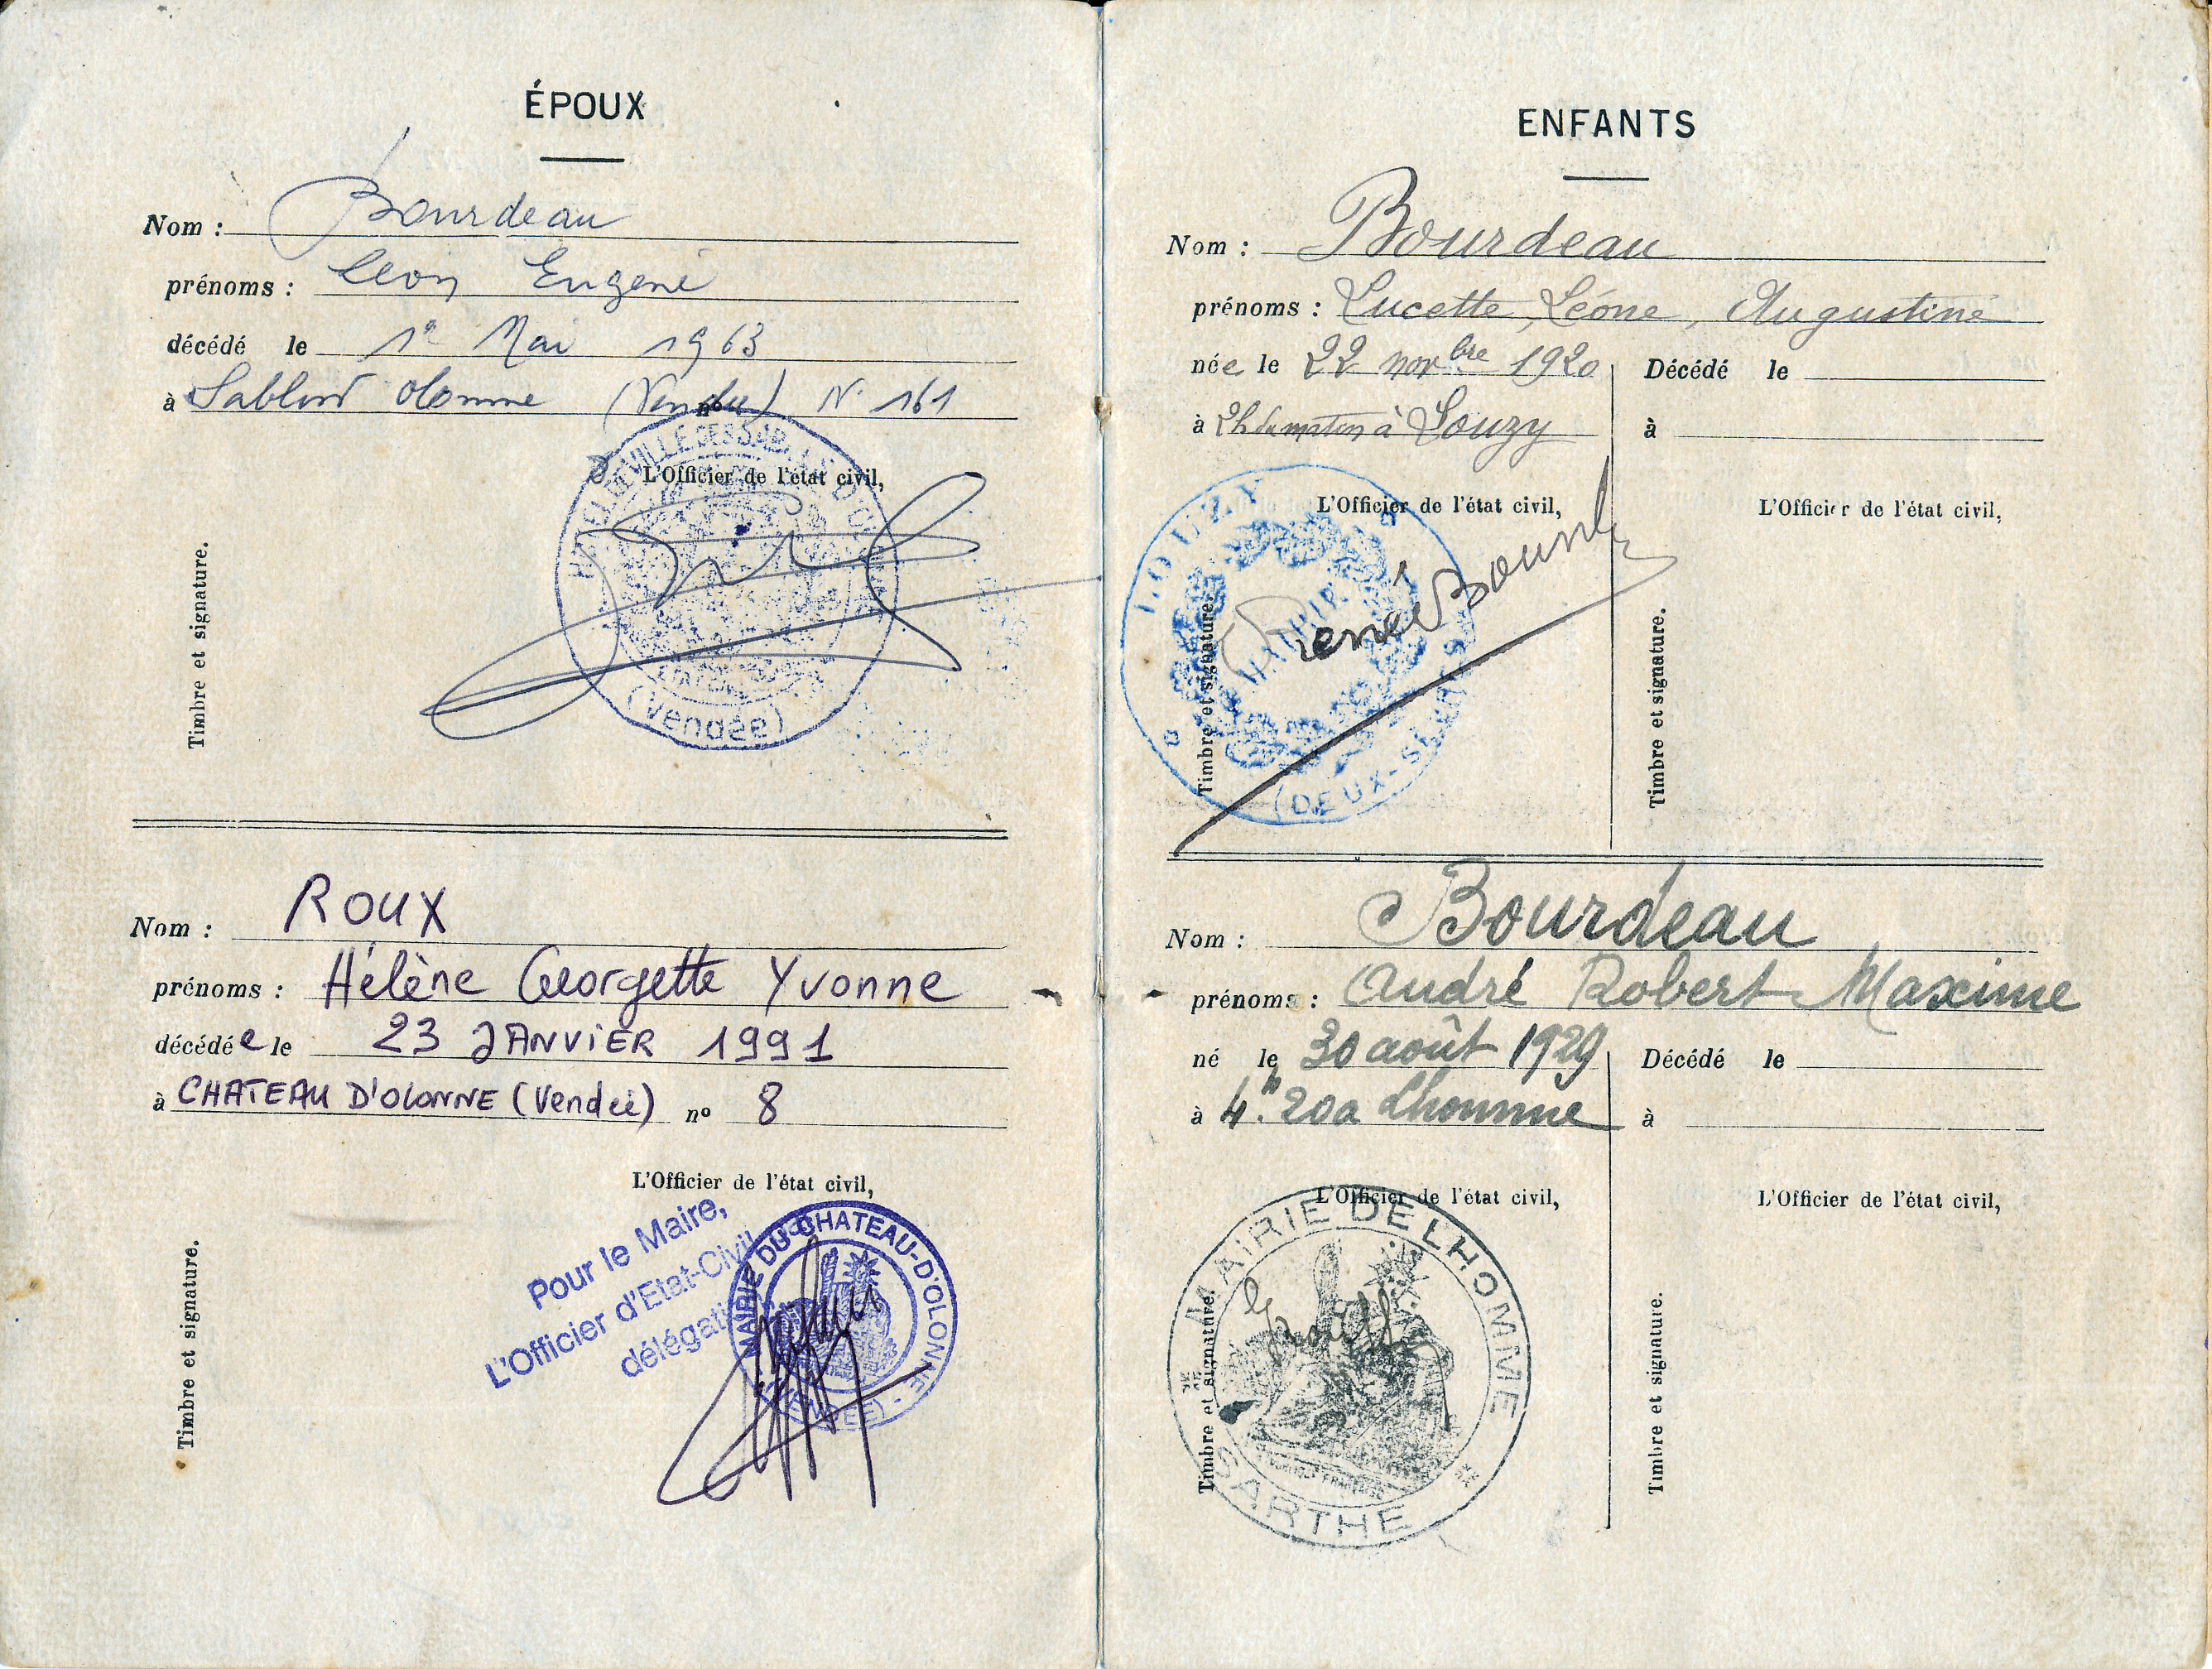 ÉPOUX
Nom : Bourdeau
prénoms : Léon Eugène
décédé le 1er Mai 1963
à Sables d'Olonne (Vendée) N° 161
L'Officier de l'état civil,
HOTEL DE VILLE DES SABLES D'OLONNE
(Vendée)
Timbre et signature.
Nom : ROUX
prénoms : Hélène Georgette Yvonne
décédée le 23 JANVIER 1991
à CHATEAU D'OLONNE (Vendée) n° 8
L'Officier de l'état civil,
Pour le Maire,
L'Officier d'Etat-Civil
MAIRIE DU CHATEAU-D'OLONNE
(VENDEE)
Timbre et signature.
ENFANTS
Nom : Bourdeau
prénoms : Lucette, Léone, Augustine
née le 22 novbre 1920
à 2h du matin à Louzy
Décédé le
à
L'Officier de l'état civil,
L'Officier de l'état civil,
LOUZY
MAIRIE
(DEUX-SÈVRES)
René
Timbre et signature.
Timbre et signature.
Nom : Bourdeau
prénoms : André Robert Maxime
né le 30 août 1929
à 4h. 20 a Lhomme
Décédé le
à
L'Officier de l'état civil,
L'Officier de l'état civil,
MAIRIE DE LHOMME
SARTHE
Timbre et signature.
Timbre et signature.